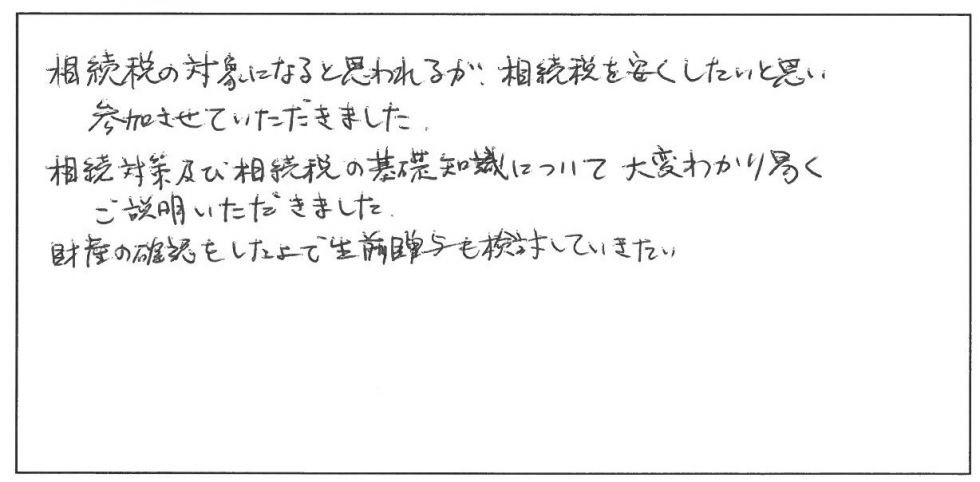 相続税の対象になると思われるが、相続税を安くしたいと思い
参加させていただきました.
相続対策及び相続税の基礎知識について大変わかり易く
ご説明いただきました.
財産の確認をした上で生前贈与も検討していきたい